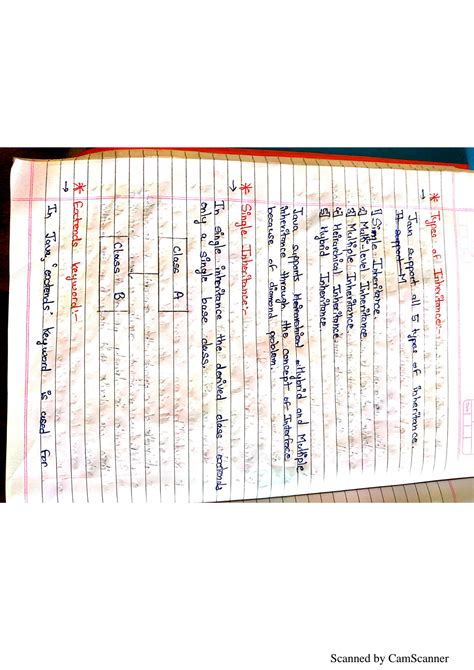 * Types of Inheritance:-
→ Java support all 5 types of inheritance.
It support M
1) Single Inheritance.
2) Multilevel Inheritance.
3) Multiple Inheritance
4) Heirarchical Inheritance.
5) Hybrid Inheritance.
Java supports Heirarchical, Hybrid and Multiple
inheritance through the concept of Interface
because of diamond problem.
* Single Inheritance:-
→ In single inheritance the derived class extends
only a single base class.
Class A
Class B
* Extends keyword:-
→ In Java, 'extends' keyword is used for
Scanned by CamScanner